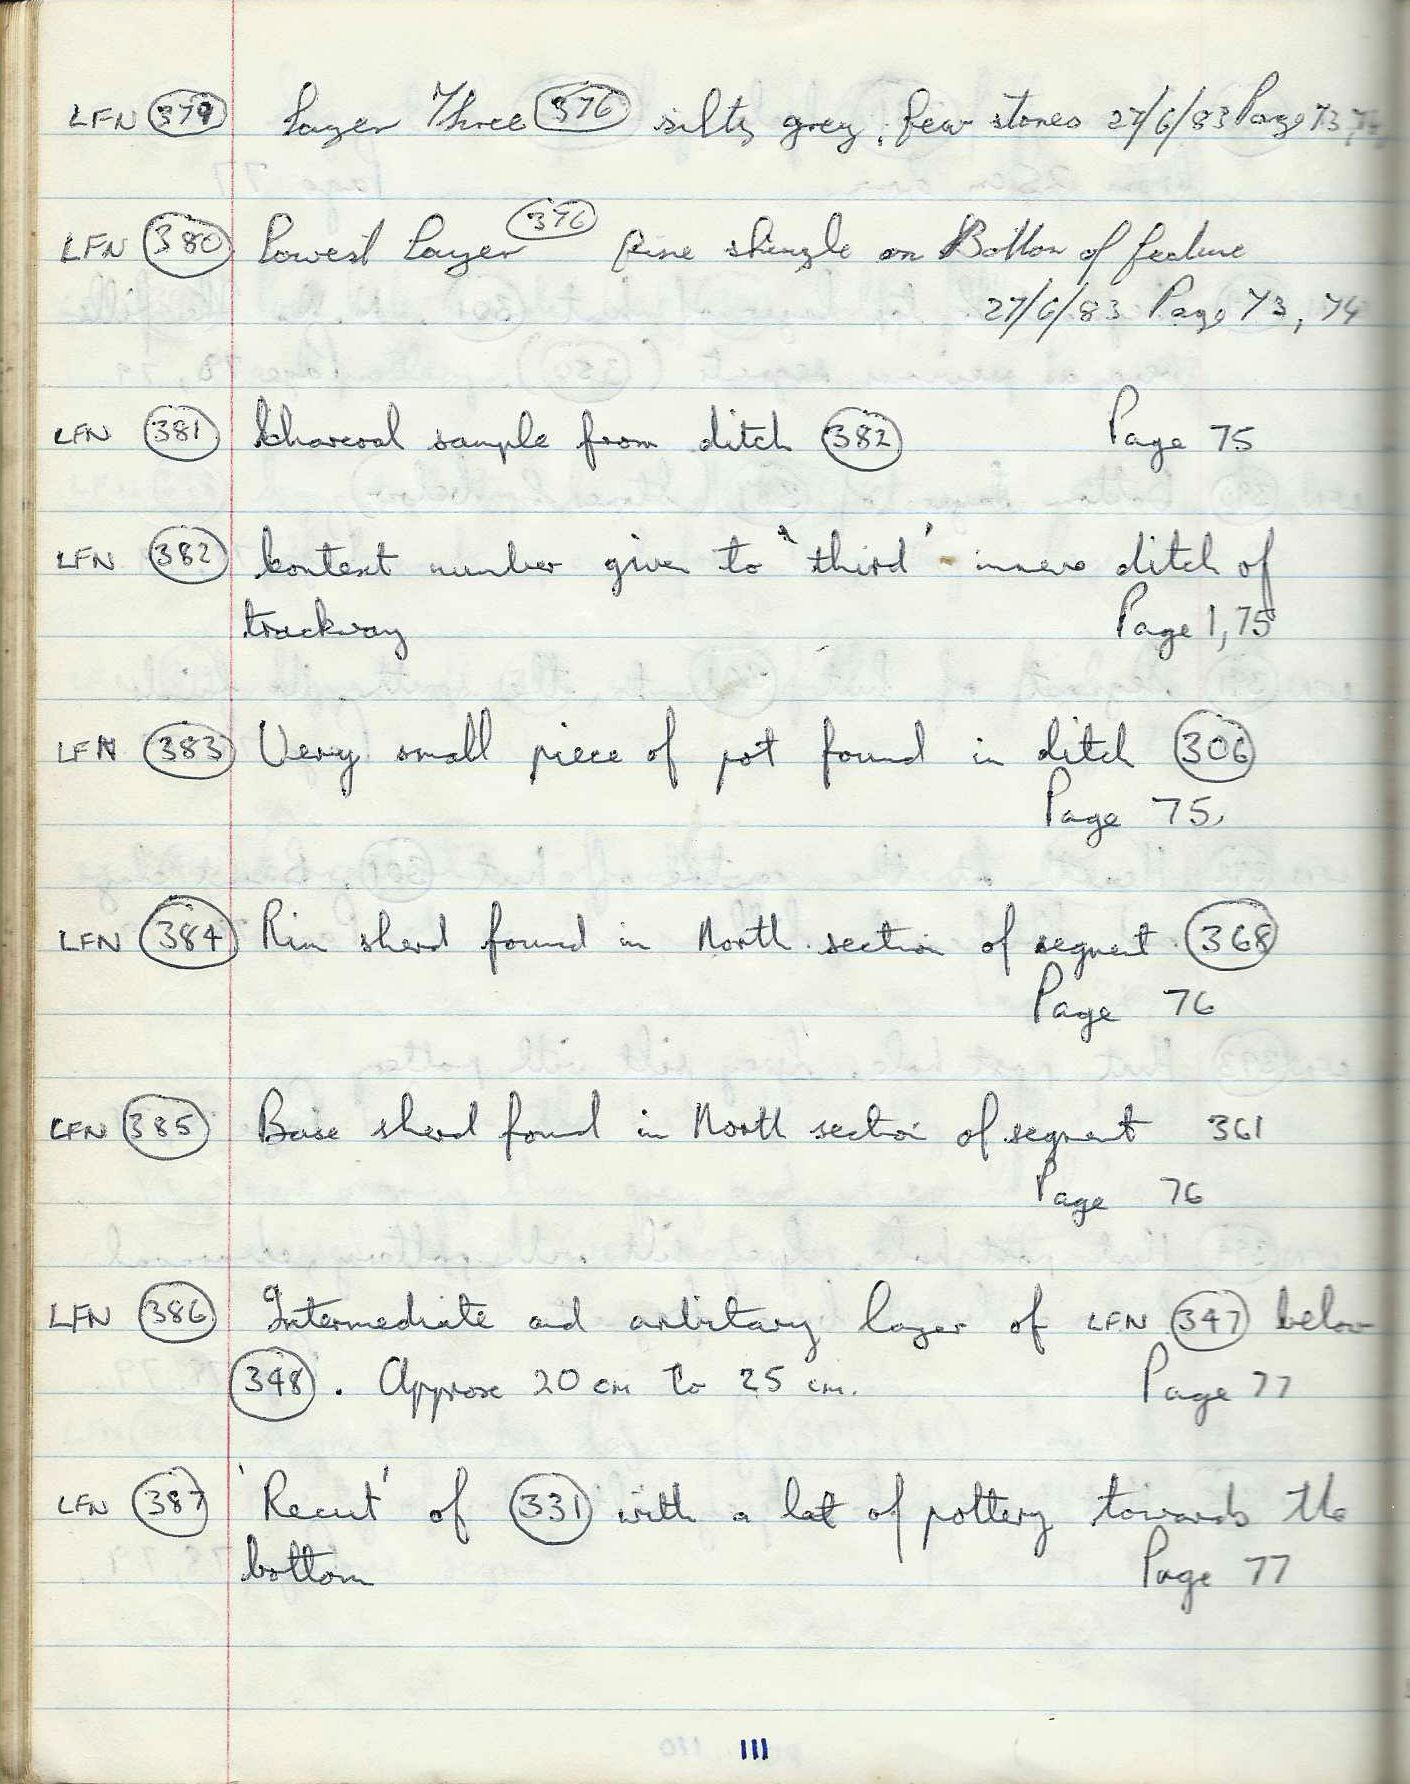 LFN 379 Layer Three 376 silty grey, few stones 27/6/83 Page 73, 74
LFN 380 Lowest Layer 376 fine shingle on Bottom of feature
27/6/83 Page 73, 74
LFN 381 Charcoal sample from ditch 382 Page 75
LFN 382 Context number given to "third' - inner ditch of
trackway Page 1, 75
LFN 383 Very small piece of pot found in ditch 306
Page 75.
LFN 384 Rim sherd found in North section of segment 368
Page 76
LFN 385 Base sherd found in North section of segment 361
Page 76
LFN 386 Intermediate and arbitary layer of LFN 347 below
348. Approx 20 cm to 25 cm. Page 77
LFN 387 'Recut' of 331 with a lot of pottery towards the
bottom Page 77
111